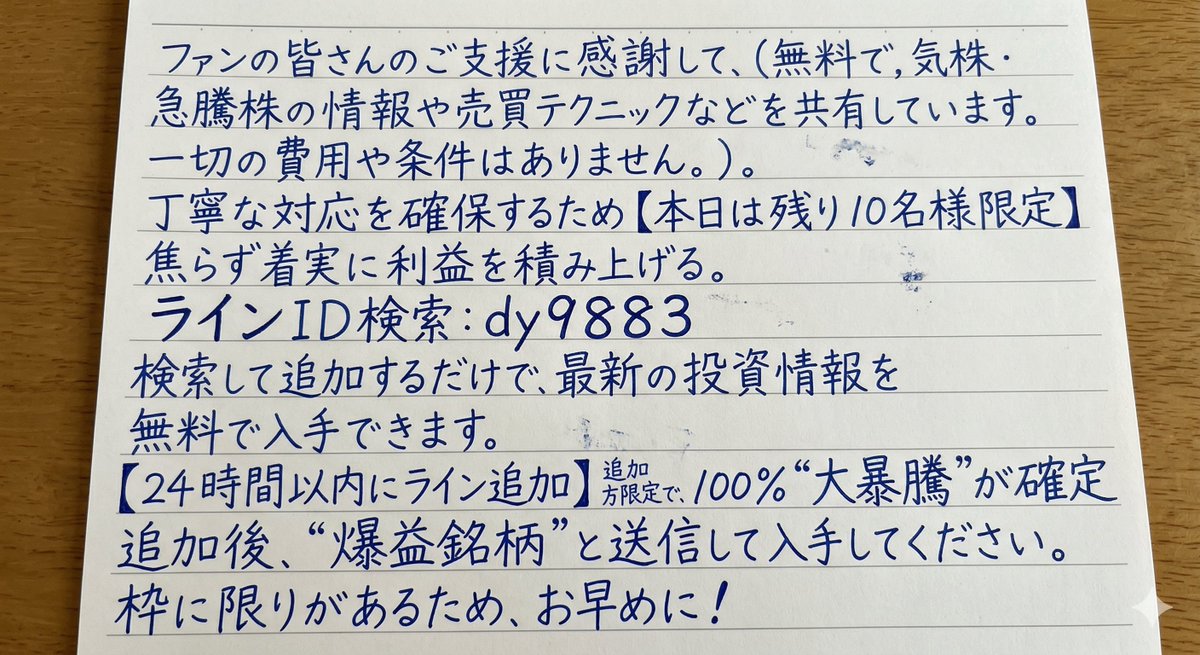 ファンの皆さんのご支援に感謝して、(無料で,気株・
急騰株の情報や売買テクニックなどを共有しています。
一切の費用や条件はありません。)。
丁寧な対応を確保するため【本日は残り10名様限定】
焦らず着実に利益を積み上げる。
ラインID検索:dy9883
検索して追加するだけで、最新の投資情報を
無料で入手できます。
【24時間以内にライン追加】追加方限定で、100%“大暴騰”が確定
追加後、“爆益銘柄”と送信して入手してください。
枠に限りがあるため、お早めに!